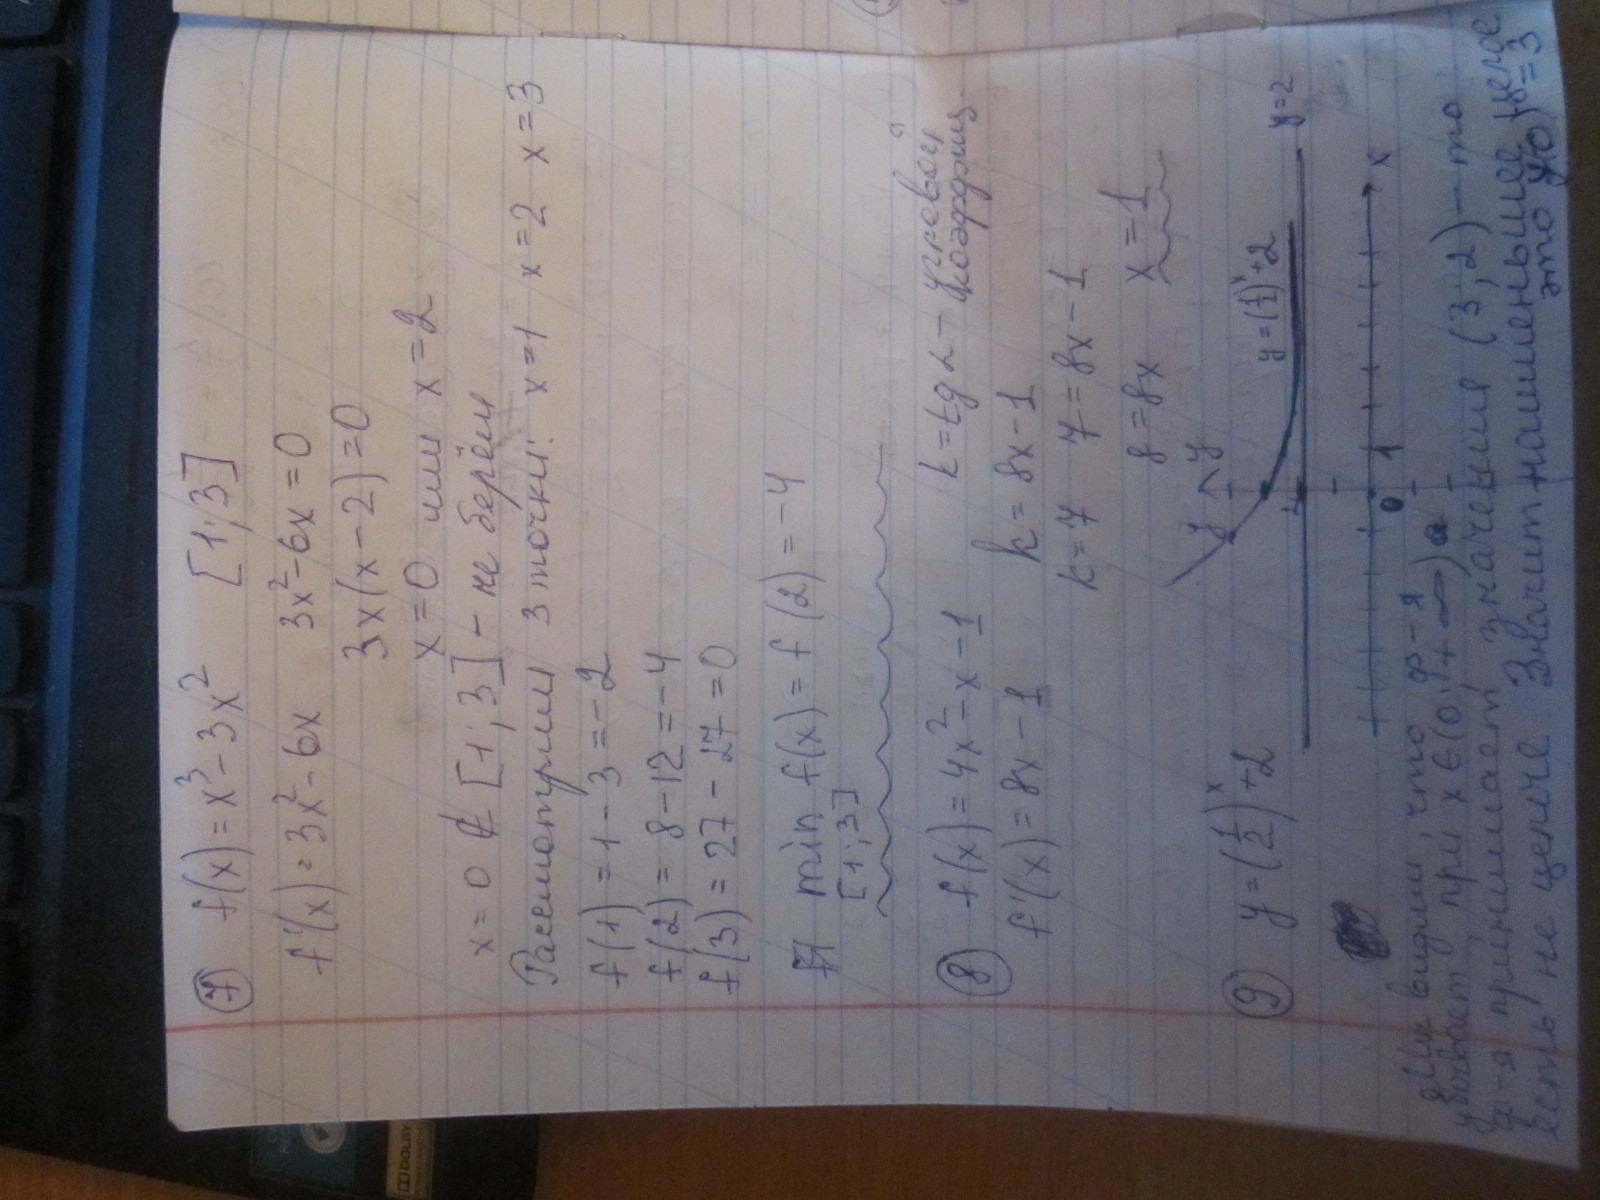 7 f(x) = x³ - 3x² [1; 3]
f'(x) = 3x² - 6x 3x² - 6x = 0
3x(x - 2) = 0
x = 0 или x = 2
x = 0 ∉ [1; 3] - не берём
Рассмотрим 3 точки: x = 1 x = 2 x = 3
f(1) = 1 - 3 = -2
f(2) = 8 - 12 = -4
f(3) = 27 - 27 = 0
min f(x) = f(2) = -4
[1; 3]
8 f(x) = 4x² - x - 1 k = tg α - угловой коэффиц.
f'(x) = 8x - 1 k = 8x - 1
k = 7 7 = 8x - 1
8 = 8x x = 1
9 y = (1/2)ˣ + 2
y
y = (1/2)ˣ + 2
y = 2
0 1 x
видим, что ф-я
убывает при x ∈ (0; + ∞)
ф-я принимает значения (3; 2) - то
есть не целые. Значит наименьшее целое
это y(0) = 3
DOLBY